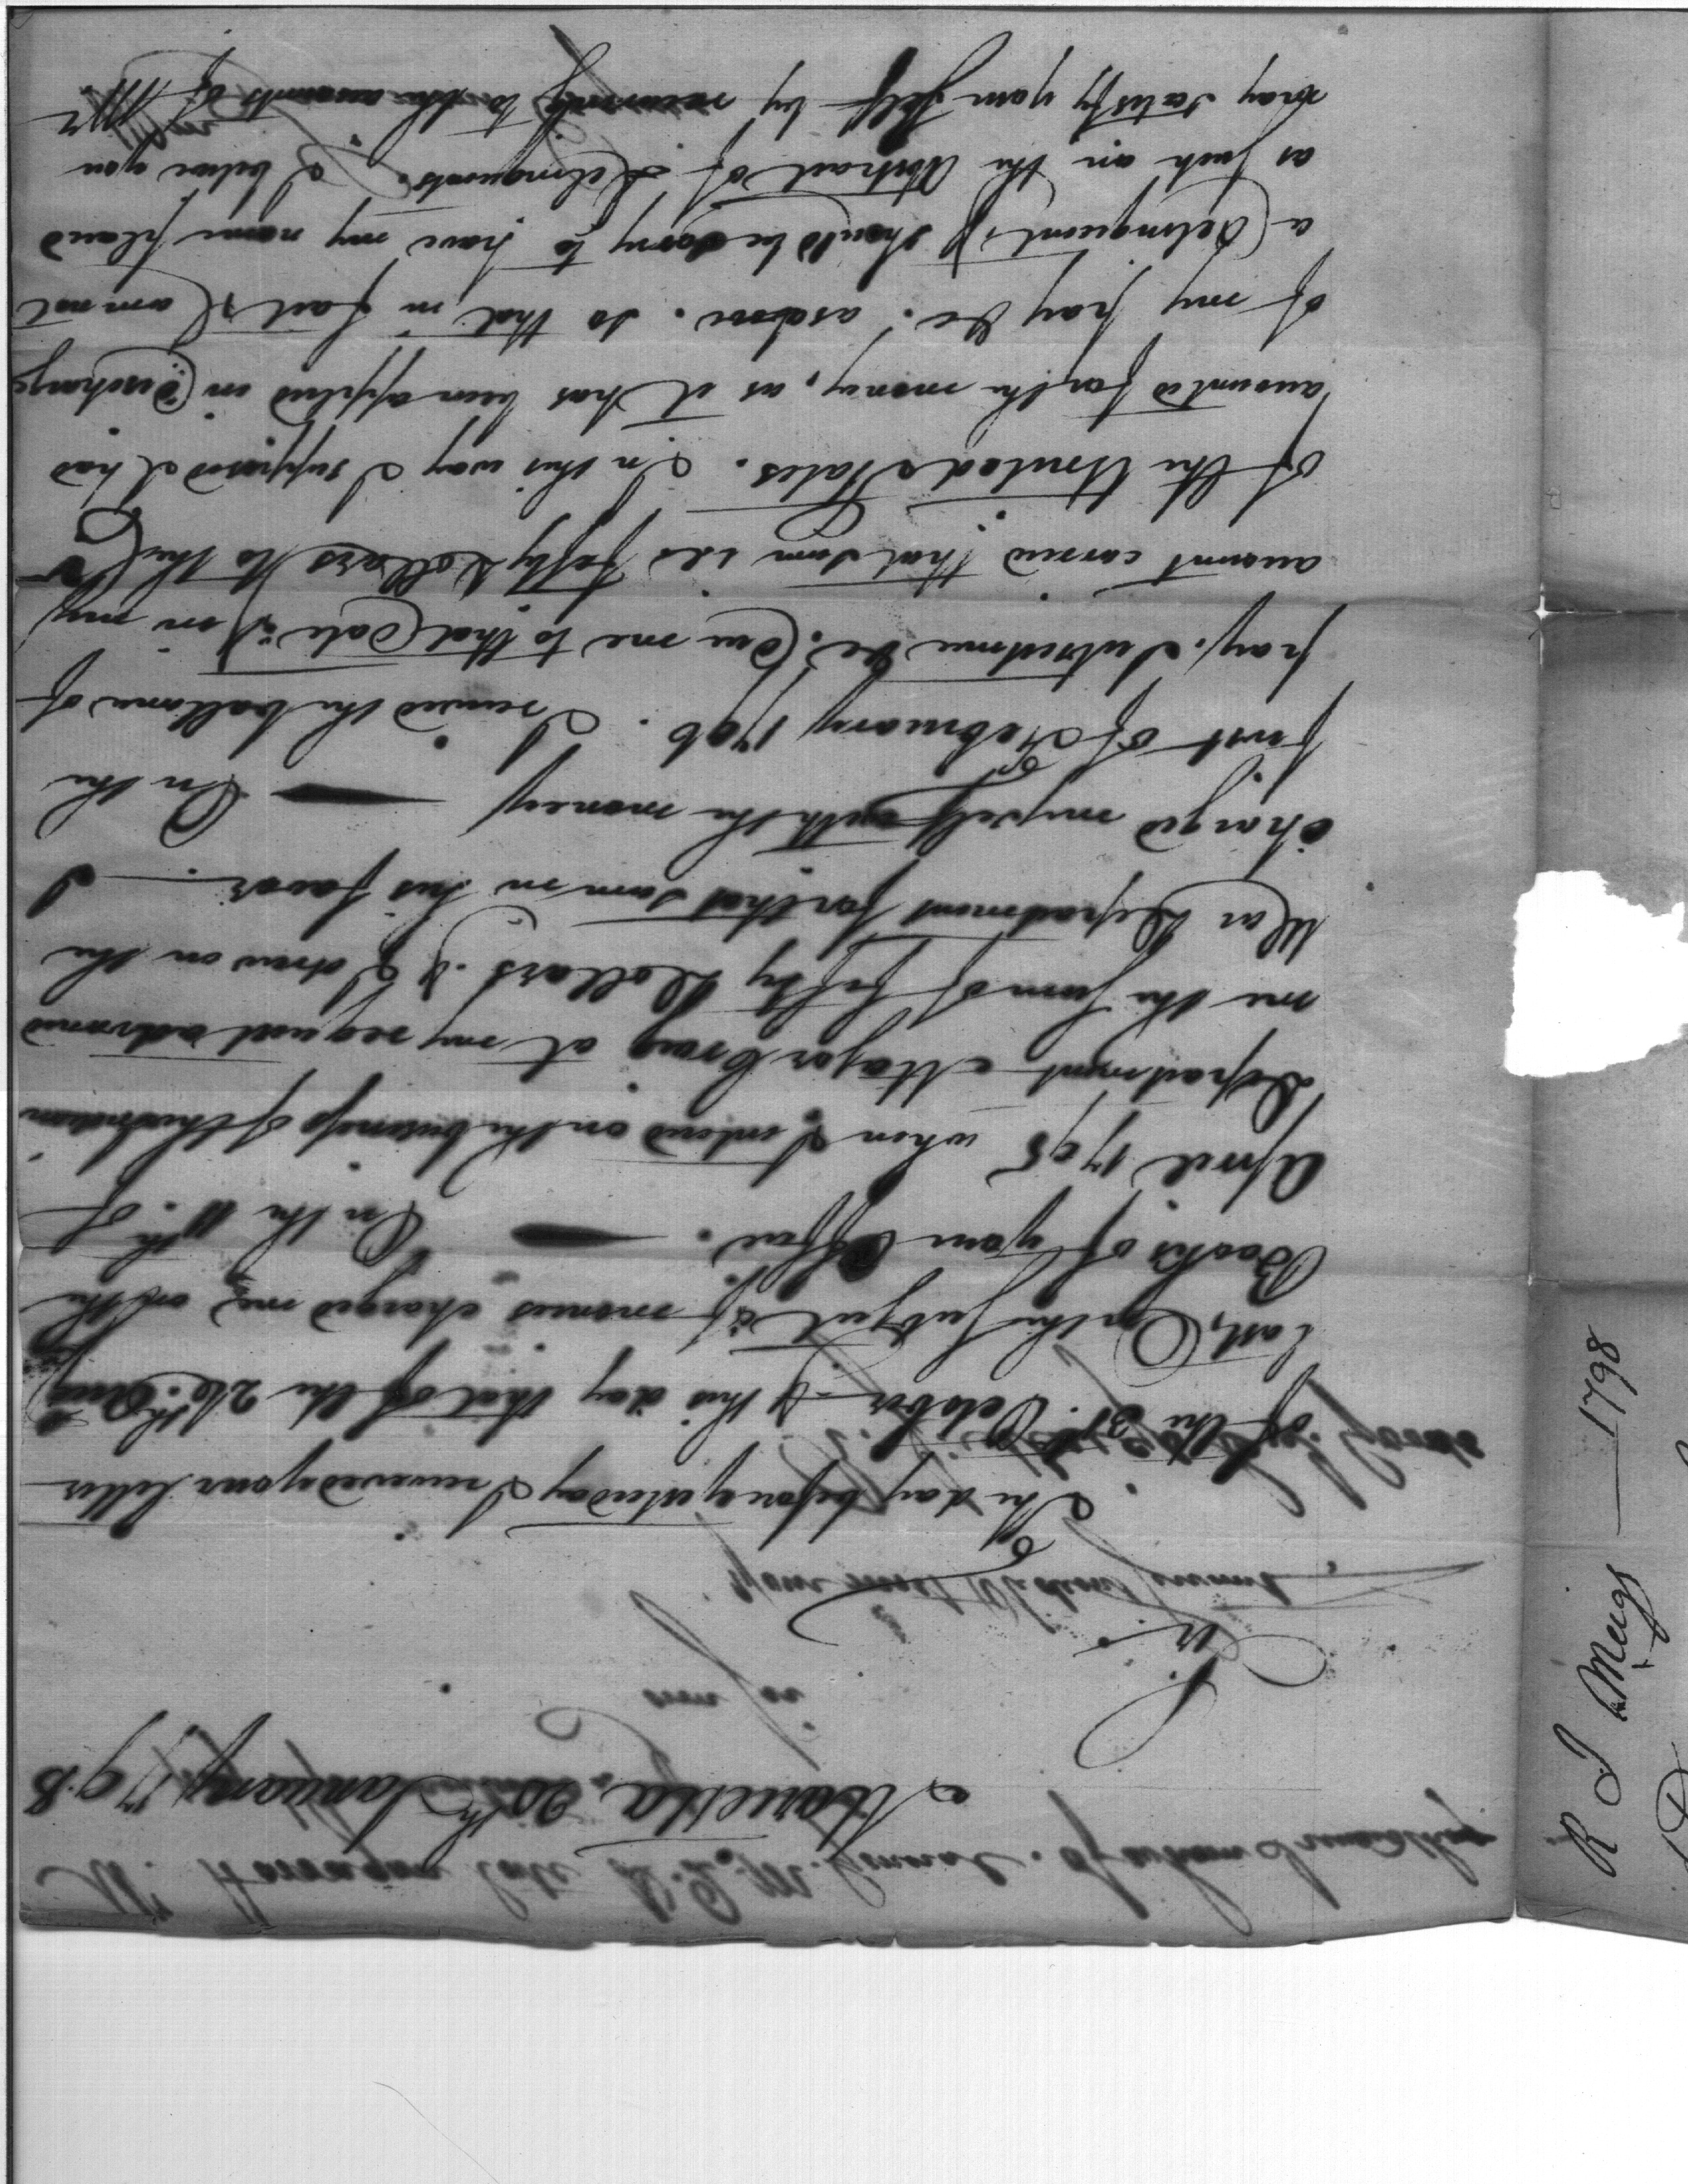 Marietta, 20th January 1798
Sir.
The day before yesterday I received your letter
of the 31st October & this day that of the 26th
last, On the subject of monies charged me, on the
Books of your Office. — On the 11th of
April 1795 when I entered on the business of the Indian
Department, Major Craig at my request advanced
me the sum of fifty Dollars. & I drew on the
War Department for that sum in his favor. — I
charged myself with the money — On the
first of February 1796. I received the ballance of
pay. Subsistence &c. Due me to that Date & in my
account carried that sum viz fifty Dollars to the Cr
of the United States. In this way I supposed I had
accounted for the money, as it has been applied in Discharge
of my pay &c. as above. So that in fact I am not
a Delinquent, & should be sorry to have my name placed
as such on the Abstract of Delinquents. I believe you
may satisfy your self by recurring to the accounts of Mr
W. Hodgdon late Q. M. General. by whom I
R J Meigs — 1798